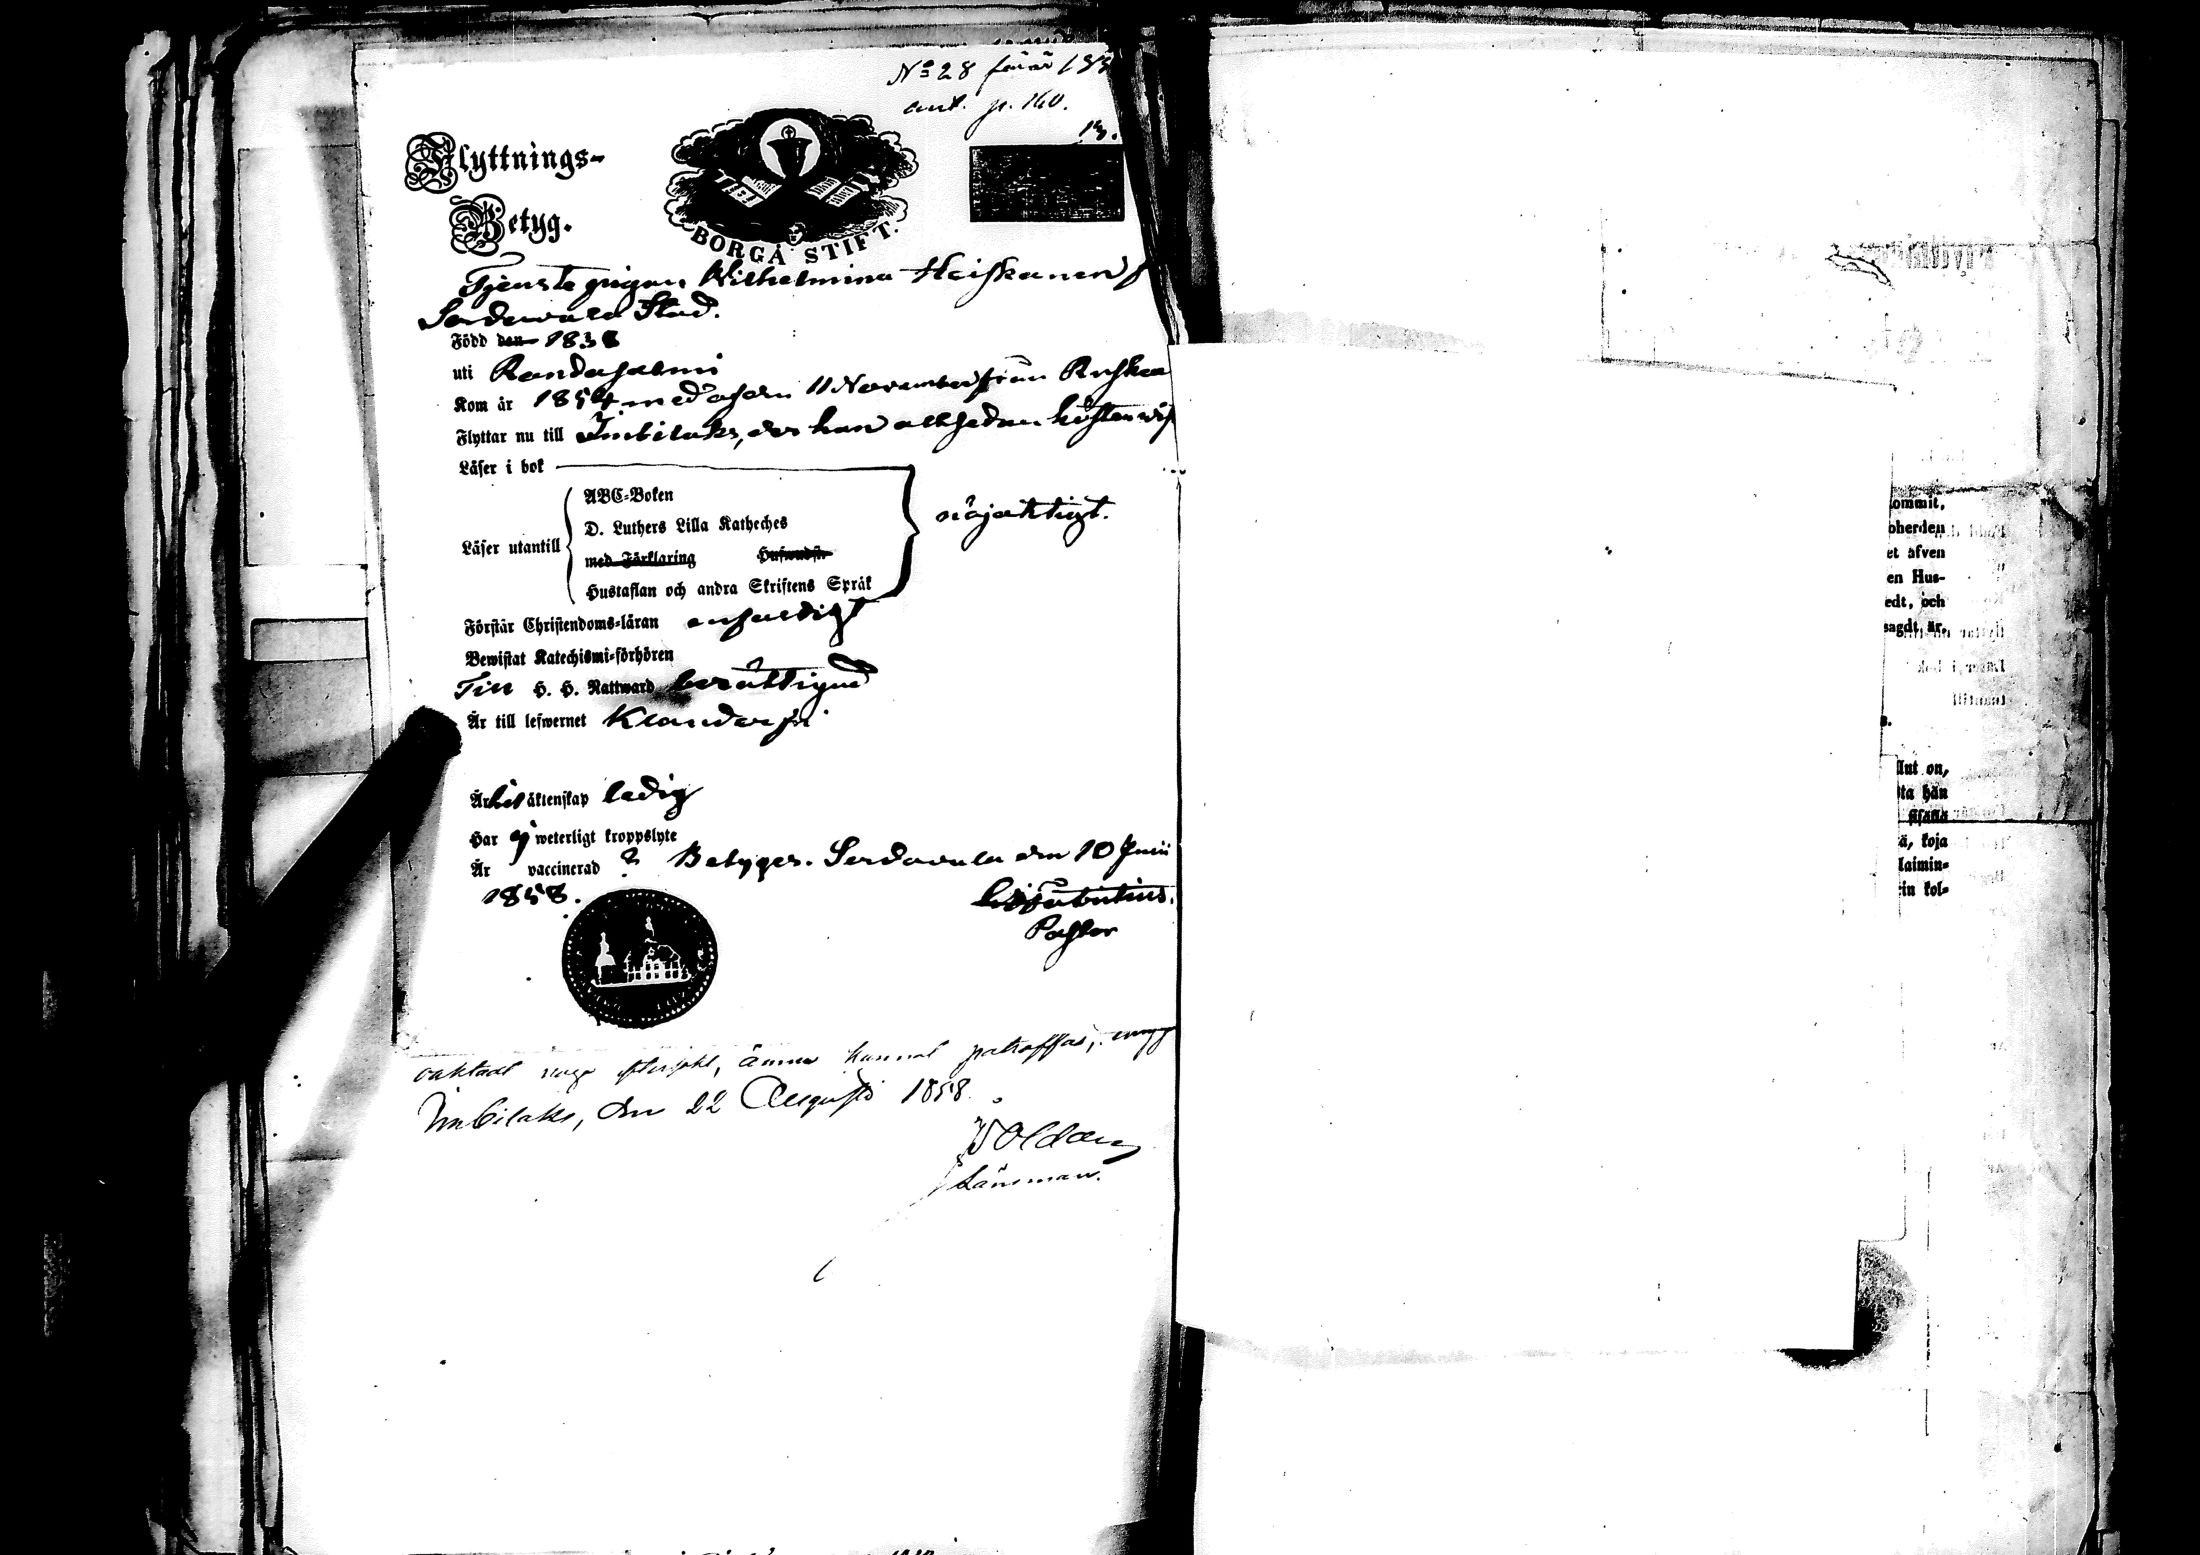 No 28 för år 185
ant. p. 160.
Flyttnings-
Betyg.
BORGÅ STIFT.
Tjenstepigan Wilhelmina Heiskanen f
Sordawala Stad.
Född den 1838
uti Randasalmi
Kom år 1854 med afsern 11 November från Ruskea
Flyttar nu till Imbilaks, der hon allsedan hösten
Läser i bok
Läser utantill
ABC-Boken
D. Luthers Lilla Katheches
med Förklaring
Hustaflan och andra Skriftens Språk
nöjaktigt.
Förstår Christendoms-läran enfaldigt
Bewistat Katechismi-förhören
Till H. H. Nattward berättigad
Är till lefwernet Klanderfri
Är till äktenskap ledig
Har ej weterligt kroppslyte
Är vaccinerad ? Betygar. Sordavala den 10 Junii
1858.
Pastor
oaktadt noga efterspht, ännu kunnat påträffas,
Imbilaks, den 22 Augusti 1858.
Länsman.
kommit,
oherden
et afven
en Hus-
edt, och
sagdt är,
llut on,
ta hän
ä, koja
laimin-
in kol-